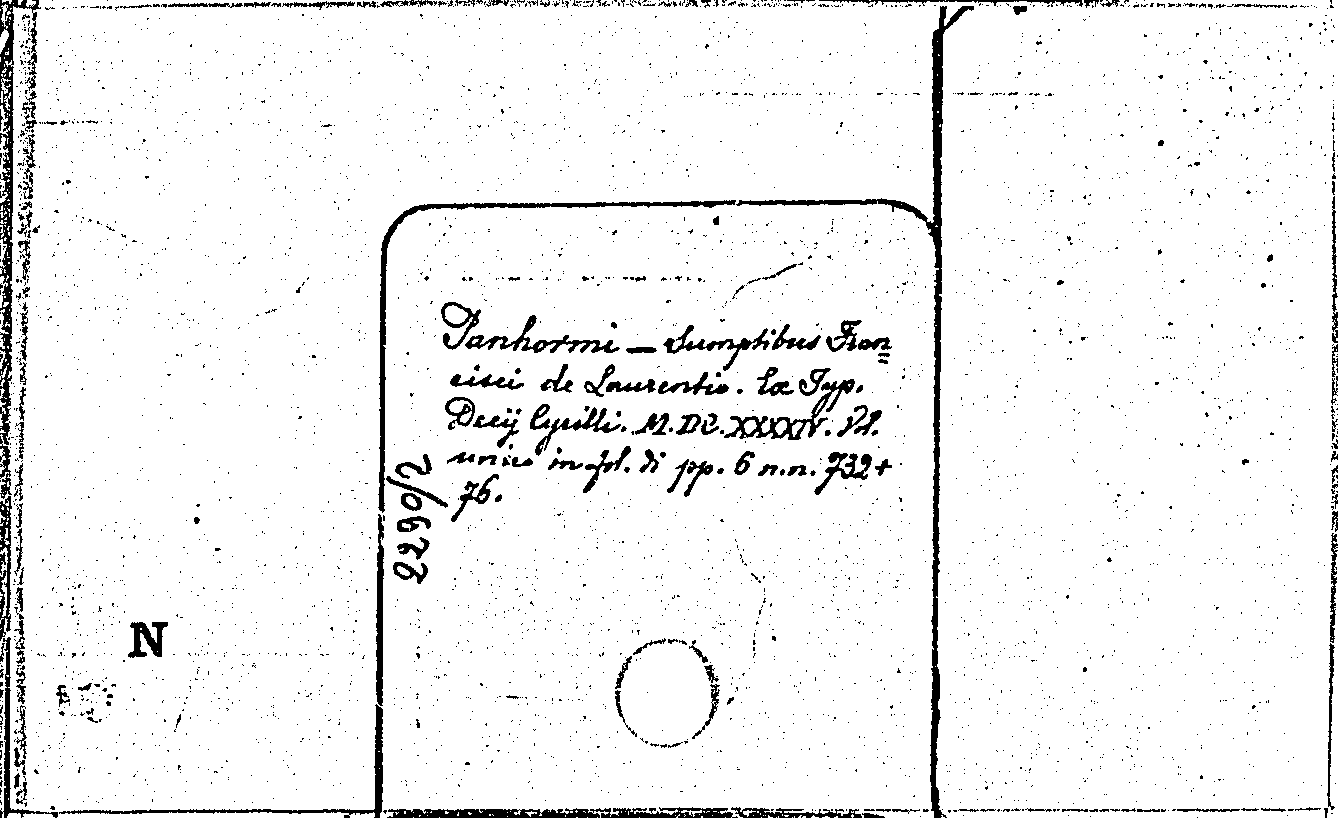 Panhormi — Sumptibus Fran=
cisci de Laurentio. Ex Typ.
Decij Cyrilli. M.DC.XXXXIV. Vol.
unico in fol. di pp. 6 n.n. 732+
76.
2290/2
N